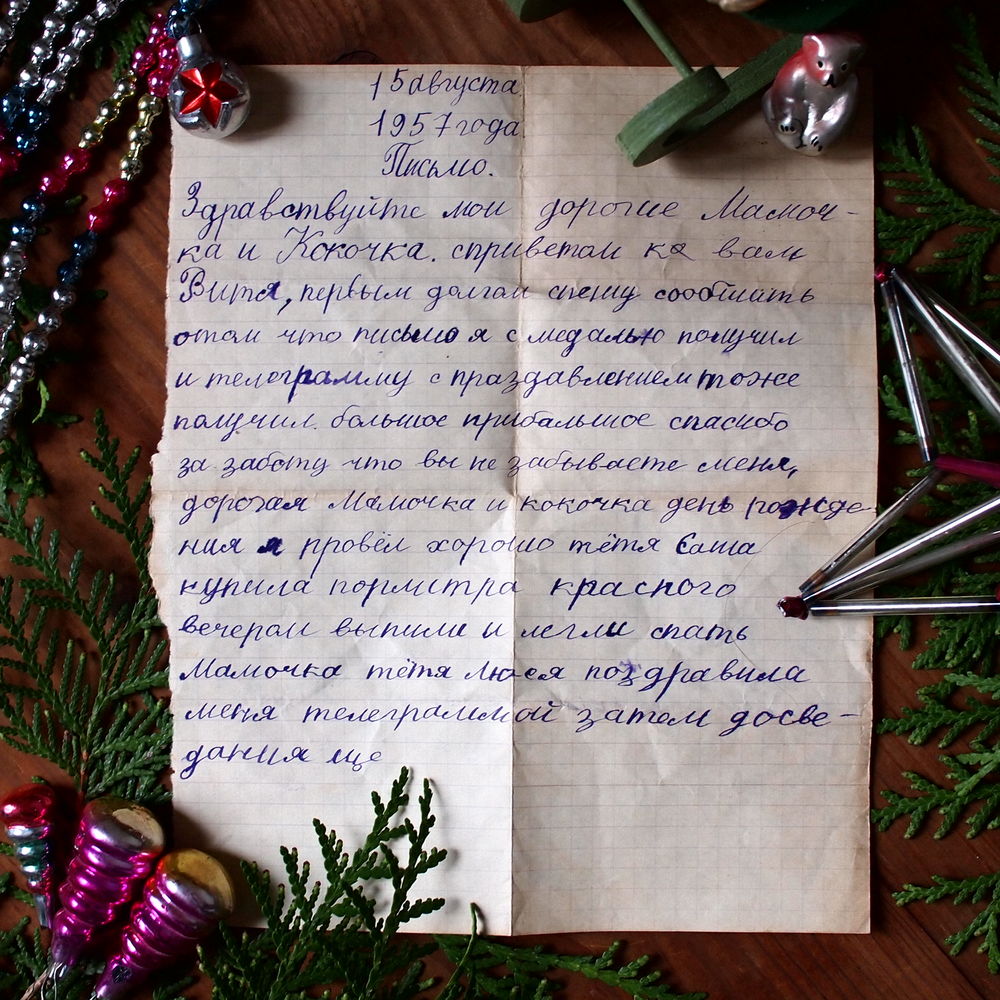 15 августа
1957 года
Письмо.
Здравствуйте мои дорогие Мамоч-
ка и Кокочка. сприветом ка вам
Витя, первым долгом спешу сообщить
отом что письмо я с медалью получил
и телеграмму с праздавлением тоже
получил. большое прибальшое спасибо
за заботу что вы не забываете меня,
дорогая Мамочка и кокочка день рожде
ния я провёл хорошо тётя Саша
купила пормстра красного
вечером выпили и легли спать
Мамочка тётя Люсся поздравила
меня телеграммой затем досве-
дания